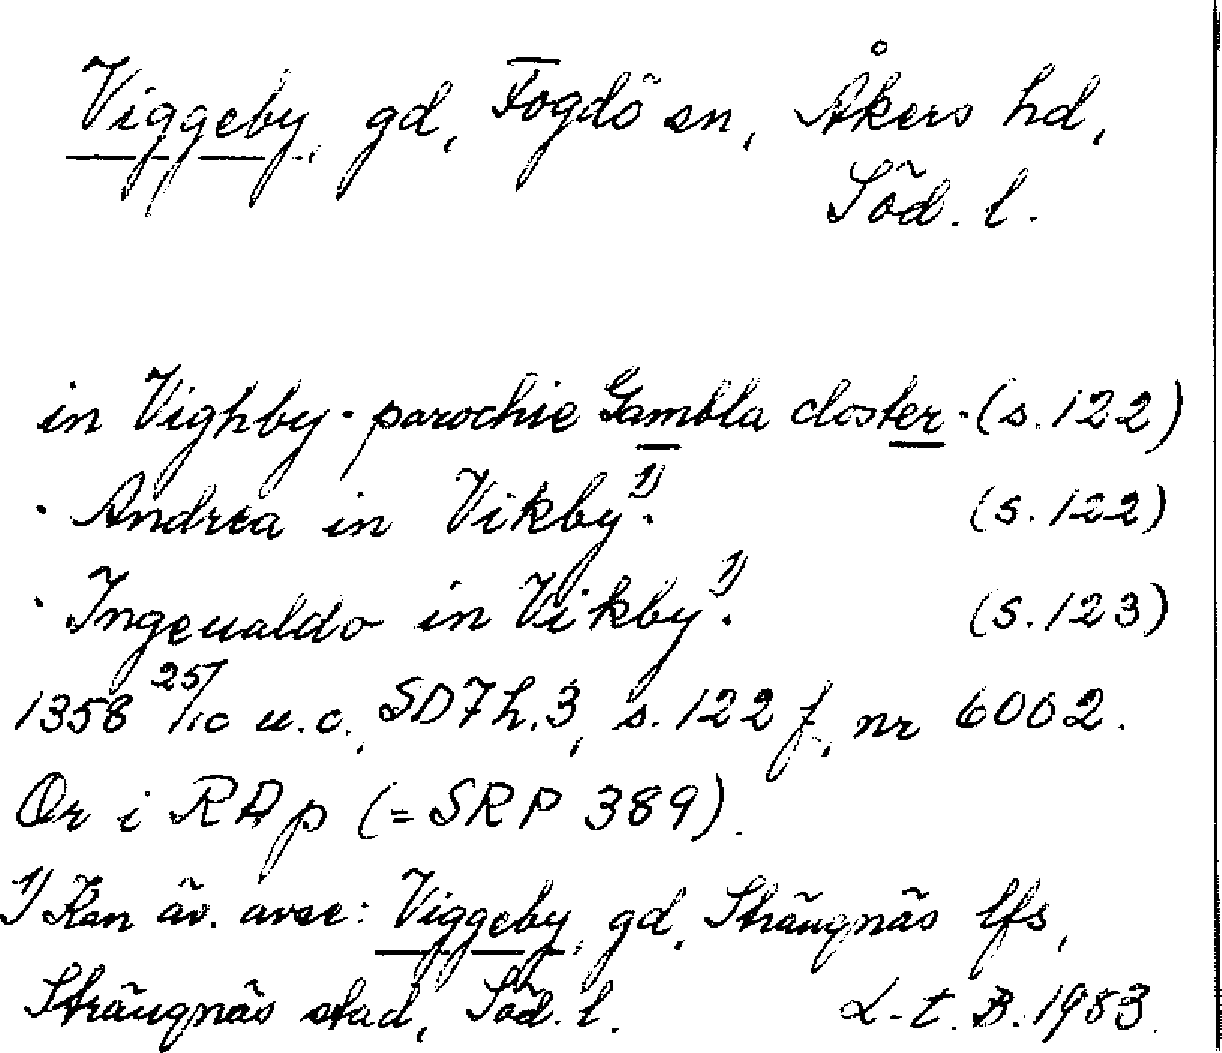 Viggeby, gd, Fogdö sn, Åkers hd,
Söd. l.
in Vighby - parochie Gambla closter - (s. 122)
- Andrea in Vikby 1) - (s. 122)
- Ingeualdo in Vikby 1) - (s. 123)
1358 25/10 u.o., SD 7 h. 3, s. 122 f, nr 6002.
Or i RAp (= SRP 389).
1) Kan äv. avse: Viggeby, gd, Strängnäs lfs,
Strängnäs stad, Söd. l. L-t. B. 1983.